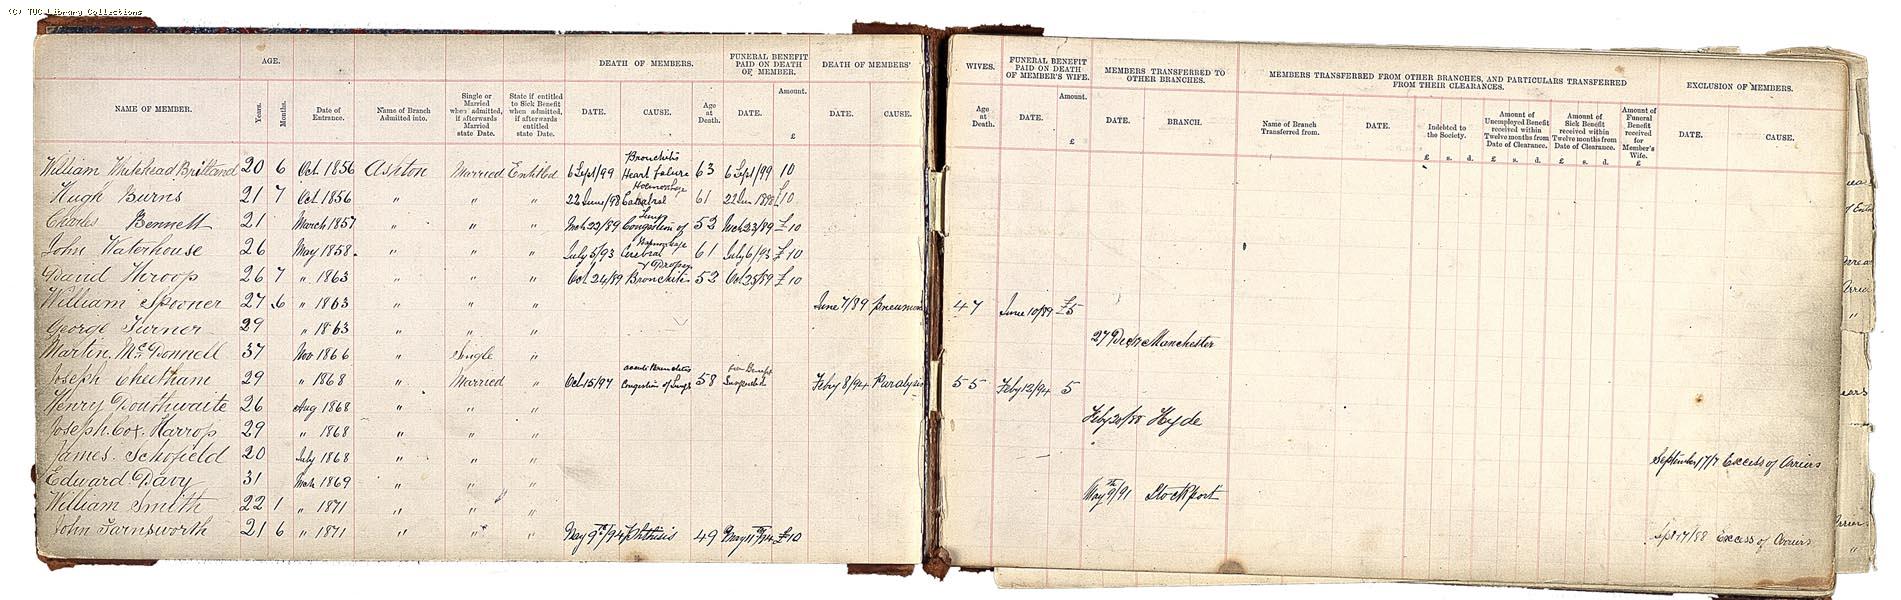 (C) TUC Library Collections
AGE.
DEATH OF MEMBERS.
FUNERAL BENEFIT PAID ON DEATH OF MEMBER.
DEATH OF MEMBERS' WIVES.
FUNERAL BENEFIT PAID ON DEATH OF MEMBER'S WIFE.
MEMBERS TRANSFERRED TO OTHER BRANCHES.
MEMBERS TRANSFERRED FROM OTHER BRANCHES, AND PARTICULARS TRANSFERRED FROM THEIR CLEARANCES.
EXCLUSION OF MEMBERS.
NAME OF MEMBER.
Years.
Months.
Date of Entrance.
Name of Branch Admitted into.
Single or Married when admitted, if afterwards Married state Date.
State if entitled to Sick Benefit when admitted, if afterwards entitled state Date.
DATE.
CAUSE.
Age at Death.
DATE.
Amount.
£
DATE.
CAUSE.
Age at Death.
DATE.
Amount.
£
DATE.
BRANCH.
Name of Branch Transferred from.
DATE.
Indebted to the Society.
Amount of Unemployed Benefit received within Twelve months from Date of Clearance.
Amount of Sick Benefit received within Twelve months from Date of Clearance.
Amount of Funeral Benefit received for Member's Wife.
DATE.
CAUSE.
£ s. d. £ s. d. £ s. d. £
William Whitehead Britland 20 6 Oct 1856 Ashton Married Entitled 6 Sept/99 Bronchitis Heart failure 63 6 Sept/99 10
Hugh Burns 21 7 Oct 1856 " " " 22 June/98 61 £10
Charles Bennett 21 March 1857 " " " Mch 22/89 Congestion of Lungs 52 Mch 23/89 £10
John Waterhouse 26 May 1858 " " " July 5/93 Cerebral 61 July 6/93 £10
David Throop 26 7 " 1863 " " " Oct 24/89 Bronchitis & Dropsy 52 Oct 25/89 £10
William Spooner 27 6 " 1863 " " " June 7/89 pneumon 47 June 10/89 £5
George Turner 29 " 1863 " " "
Martin McDonnell 37 Nov 1866 " Single " Manchester
Joseph Cheetham 29 " 1868 " Married " Oct 15/97 Congestion of Lungs 58 Suspended Feby 8/94 Paralysis 55 Feby 12/94 5
Henry Douthwaite 26 Aug 1868 " " "
Joseph Cox Harrop 29 " 1868 " " " Hyde
James Schofield 20 July 1868 " " " September 17/7 Excess of Arriers
Edward Davy 31 Mch 1869 " " "
William Smith 22 1 " 1871 " " " May 9th/91 Stockport
John Farnsworth 21 6 " 1871 " " " May 9th/94 phthisis 49 May 11th/94 £10 Sept 17/88 Excess of Arriers